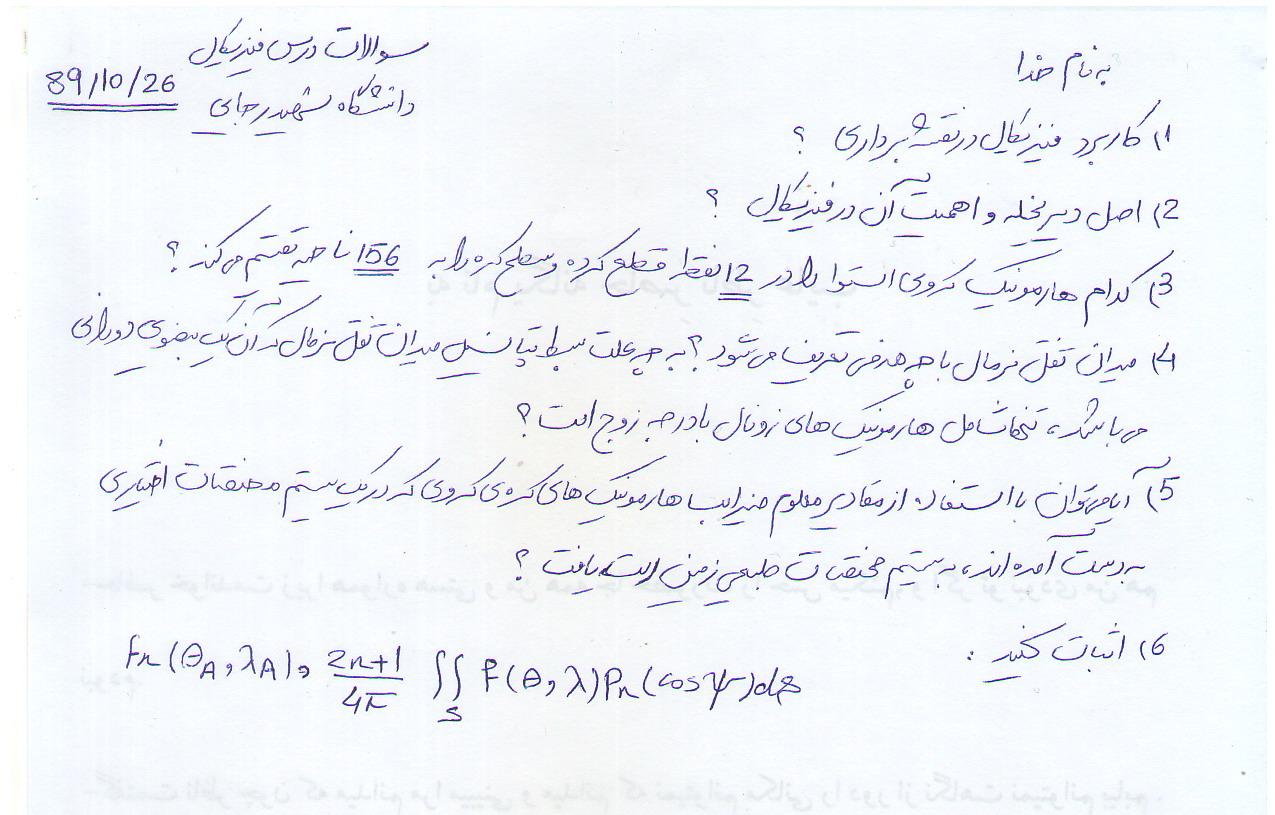 به نام خدا
سوالات درس فیزیکال
دانشگاه شهید رجایی
89/10/26
1) کاربرد فیزیکال در نقشه برداری ؟
2) اصل دیریخله و اهمیت آن در فیزیکال ؟
3) کدام هارمونیک کروی استوا را در 12 نقطه قطع کرده و سطح کره را به 156 ناحیه تقسیم می کند ؟
4) میدان ثقل نرمال با چه هدفی تعریف می شود ؟ به چه علت بسط پتانسیل میدان ثقل نرمال که آن یک بیضوی دورانی
می باشد ، تنها شامل هارمونیک های زونال با درجه زوج است ؟
5) آیا می توان با استفاده از مقادیر معلوم ضرایب هارمونیک های کره ی کروی که در یک سیستم مختصات اختیاری
به دست آمده اند ، به سیستم مختصات طبیعی زمین دست یافت ؟
6) اثبات کنید :
Fn(θA, λA) = 2n+1/4π ∬s f(θ, λ)Pn(cosψ)ds